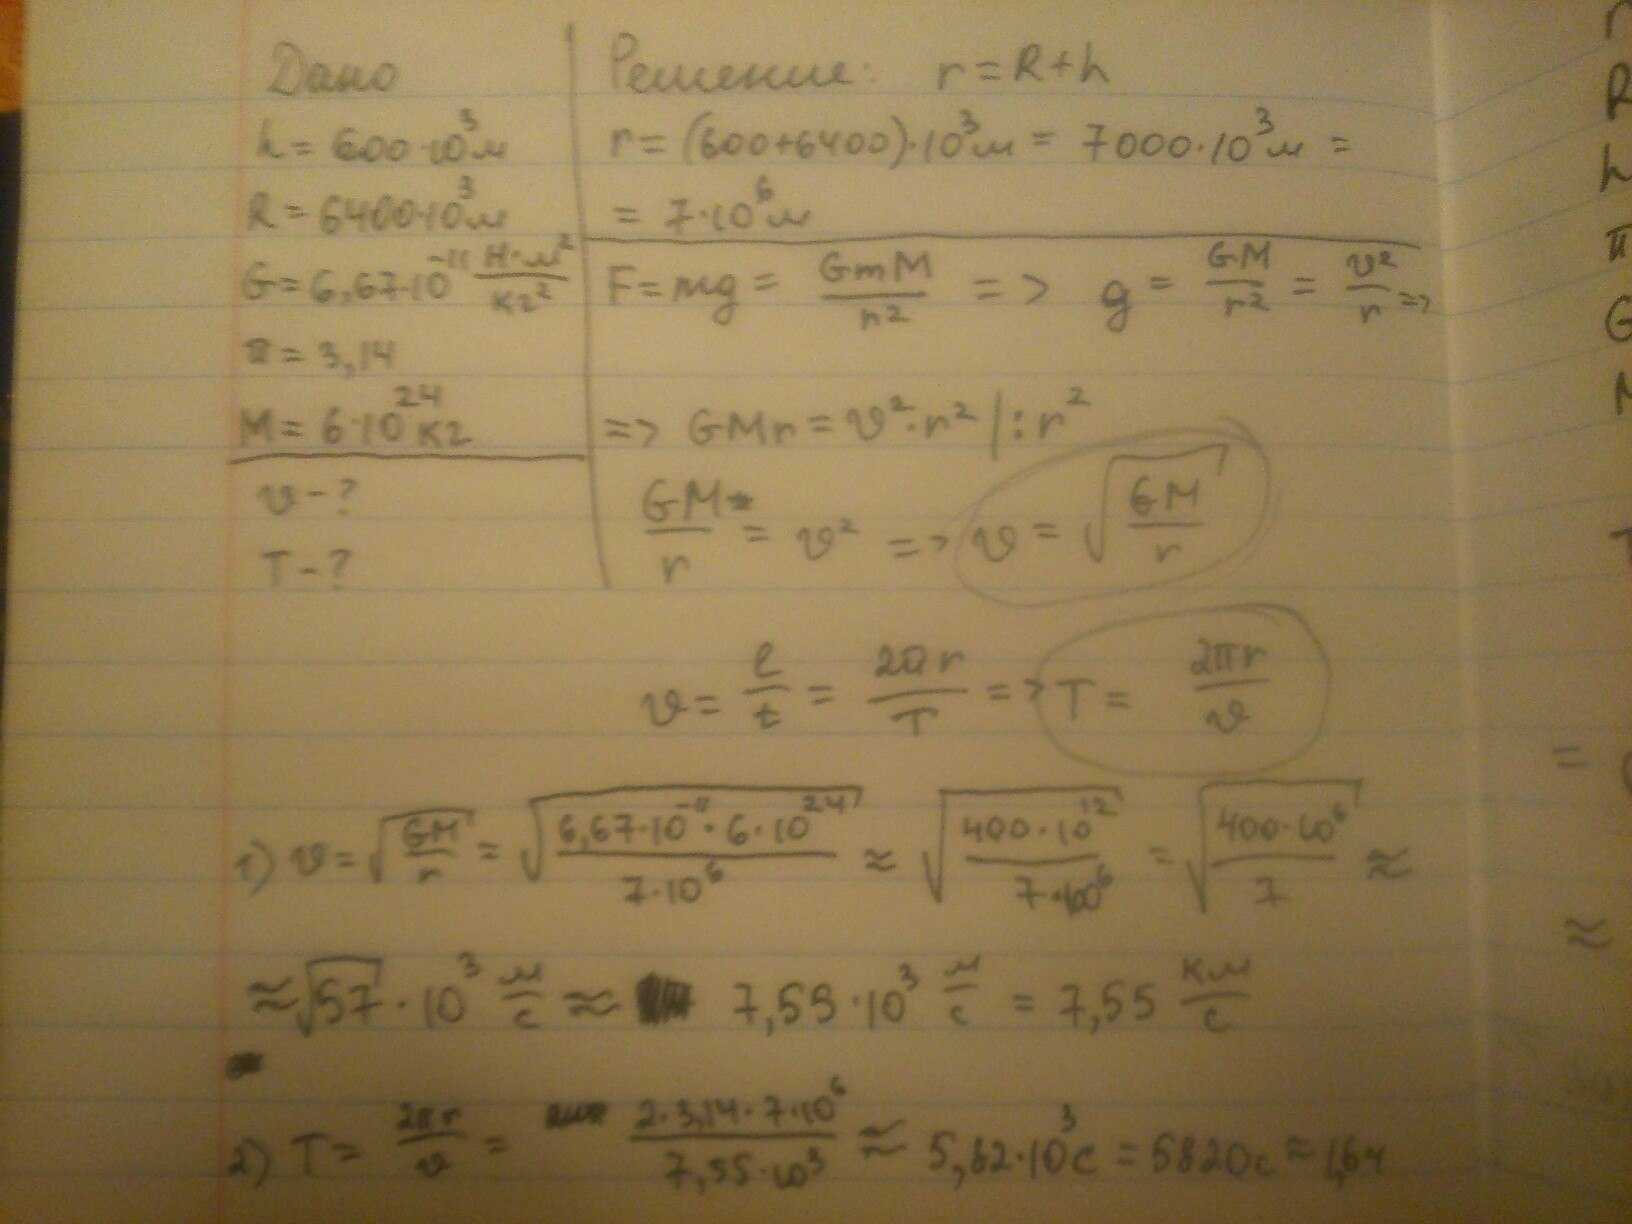 Дано
h = 600·10³м
R = 6400·10³м
G = 6,67·10⁻¹¹ Н·м²/кг²
π = 3,14
M = 6·10²⁴ кг
v - ?
T - ?
Решение: r = R + h
r = (600+6400)·10³м = 7000·10³м =
= 7·10⁶м
F = mg = GmM/r² => g = GM/r² = v²/r =>
=> GMr = v²·r² |:r²
GM/r = v² => v = √(GM/r)
v = l/t = 2πr/T => T = 2πr/v
1) v = √(GM/r) = √(6,67·10⁻¹¹·6·10²⁴/7·10⁶) ≈ √(400·10¹²/7·10⁶) = √(400·10⁶/7) ≈
≈ √57·10³ м/с ≈ 7,55·10³ м/с = 7,55 км/с
2) T = 2πr/v = 2·3,14·7·10⁶/7,55·10³ ≈ 5,82·10³с = 5820с ≈ 1,6ч